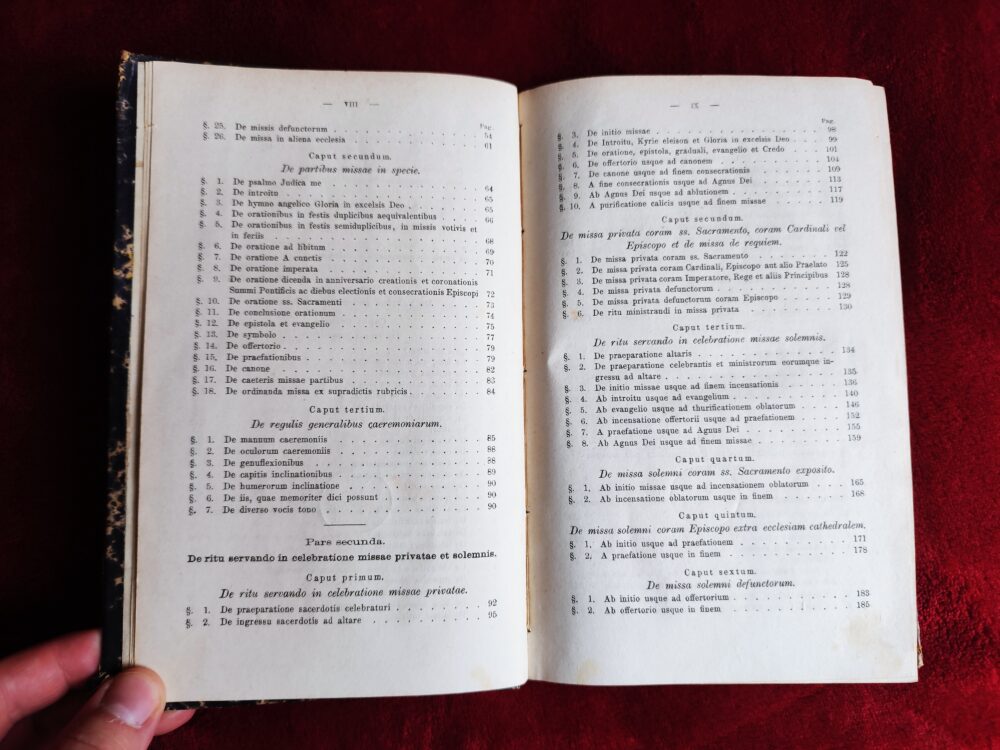 — VIII —
Pag.
§. 25. De missis defunctorum . . . . . . . . . . . . . 54
§. 26. De missa in aliena ecclesia . . . . . . . . . . . . 61
Caput secundum.
De partibus missae in specie.
§. 1. De psalmo Judica me . . . . . . . . . . . . . 64
§. 2. De introitu . . . . . . . . . . . . . . . . 65
§. 3. De hymno angelico Gloria in excelsis Deo . . . . . . . . 65
§. 4. De orationibus in festis duplicibus aequivalentibus . . . . . 66
§. 5. De orationibus in festis semiduplicibus, in missis votivis et
in feriis . . . . . . . . . . . . . . . . . 68
§. 6. De oratione ad libitum . . . . . . . . . . . . . 69
§. 7. De oratione A cunctis . . . . . . . . . . . . . 70
§. 8. De oratione imperata . . . . . . . . . . . . . 71
§. 9. De oratione dicenda in anniversario creationis et coronationis
Summi Pontificis ac diebus electionis et consecrationis Episcopi 72
§. 10. De oratione ss. Sacramenti . . . . . . . . . . . . 73
§. 11. De conclusione orationum . . . . . . . . . . . . 74
§. 12. De epistola et evangelio . . . . . . . . . . . . 75
§. 13. De symbolo . . . . . . . . . . . . . . . . 77
§. 14. De offertorio . . . . . . . . . . . . . . . . 79
§. 15. De praefationibus . . . . . . . . . . . . . . 79
§. 16. De canone . . . . . . . . . . . . . . . . 82
§. 17. De caeteris missae partibus . . . . . . . . . . . 83
§. 18. De ordinanda missa ex supradictis rubricis . . . . . . . 84
Caput tertium.
De regulis generalibus caeremoniarum.
§. 1. De manuum caeremoniis . . . . . . . . . . . . . 85
§. 2. De oculorum caeremoniis . . . . . . . . . . . . 88
§. 3. De genuflexionibus . . . . . . . . . . . . . . 88
§. 4. De capitis inclinationibus . . . . . . . . . . . . 89
§. 5. De humerorum inclinatione . . . . . . . . . . . . 90
§. 6. De iis, quae memoriter dici possunt . . . . . . . . . 90
§. 7. De diverso vocis tono . . . . . . . . . . . . . 90
Pars secunda.
De ritu servando in celebratione missae privatae et solemnis.
Caput primum.
De ritu servando in celebratione missae privatae.
§. 1. De praeparatione sacerdotis celebraturi . . . . . . . . 92
§. 2. De ingressu sacerdotis ad altare . . . . . . . . . . 95
— IX —
Pag.
§. 3. De initio missae . . . . . . . . . . . . . . 98
§. 4. De Introitu, Kyrie eleison et Gloria in excelsis Deo . . . . 99
§. 5. De oratione, epistola, graduali, evangelio et Credo . . . . 101
§. 6. De offertorio usque ad canonem . . . . . . . . . . 104
§. 7. De canone usque ad finem consecrationis . . . . . . . 109
§. 8. A fine consecrationis usque ad Agnus Dei . . . . . . . 113
§. 9. Ab Agnus Dei usque ad ablutionem . . . . . . . . . 117
§. 10. A purificatione calicis usque ad finem missae . . . . . . 119
Caput secundum.
De missa privata coram ss. Sacramento, coram Cardinali vel
Episcopo et de missa de requiem.
§. 1. De missa privata coram ss. Sacramento . . . . . . . . 122
§. 2. De missa privata coram Cardinali, Episcopo aut alio Praelato 125
§. 3. De missa privata coram Imperatore, Rege et aliis Principibus 128
§. 4. De missa privata defunctorum . . . . . . . . . . 128
§. 5. De missa privata defunctorum coram Episcopo . . . . . 129
§. 6. De ritu ministrandi in missa privata . . . . . . . . 130
Caput tertium.
De ritu servando in celebratione missae solemnis.
§. 1. De praeparatione altaris . . . . . . . . . . . . 134
§. 2. De praeparatione celebrantis et ministrorum eorumque in-
gressu ad altare . . . . . . . . . . . . . . 135
§. 3. De initio missae usque ad finem incensationis . . . . . . 136
§. 4. Ab introitu usque ad evangelium . . . . . . . . . . 140
§. 5. Ab evangelio usque ad thurificationem oblatorum . . . . . 146
§. 6. Ab incensatione offertorii usque ad praefationem . . . . . 152
§. 7. A praefatione usque ad Agnus Dei . . . . . . . . . 155
§. 8. Ab Agnus Dei usque ad finem missae . . . . . . . . 159
Caput quartum.
De missa solemni coram ss. Sacramento exposito.
§. 1. Ab initio missae usque ad incensationem oblatorum . . . . 165
§. 2. Ab incensatione oblatorum usque in finem . . . . . . . 168
Caput quintum.
De missa solemni coram Episcopo extra ecclesiam cathedralem.
§. 1. Ab initio usque ad praefationem . . . . . . . . . . 171
§. 2. A praefatione usque in finem . . . . . . . . . . . 178
Caput sextum.
De missa solemni defunctorum.
§. 1. Ab initio usque ad offertorium . . . . . . . . . . 183
§. 2. Ab offertorio usque in finem . . . . . . . . . . . 185